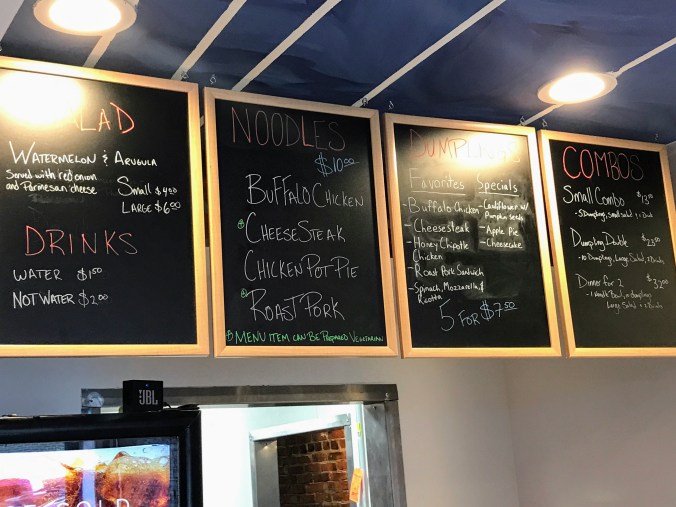 SALAD
WATERMELON & ARUGULA
Served with red onion
and Parmesan cheese
SMALL $4.50
LARGE $6.00
DRINKS
WATER $1.50
NOT WATER $2.00
NOODLES
$10.00
BUFFALO CHICKEN
CHEESE STEAK
CHICKEN POT-PIE
ROAST PORK
MENU ITEM CAN BE PREPARED VEGETARIAN
DUMPLINGS
Favorites
- Buffalo Chicken
- Cheesesteak
- Honey Chipotle
Chicken
- Roast Pork Sandwich
- Spinach, Mozzarella, &
Ricotta
Specials
- Cauliflower w/
Pumpkin Seeds
- Apple Pie
- Cheesecake
5 FOR $7.50
COMBOS
Small Combo $13.00
- 5 Dumpling, small salad
Dumpling Double $23.00
- 10 Dumplings, Large Salad
Dinner for 2 $32.00
Large Salad
JBL